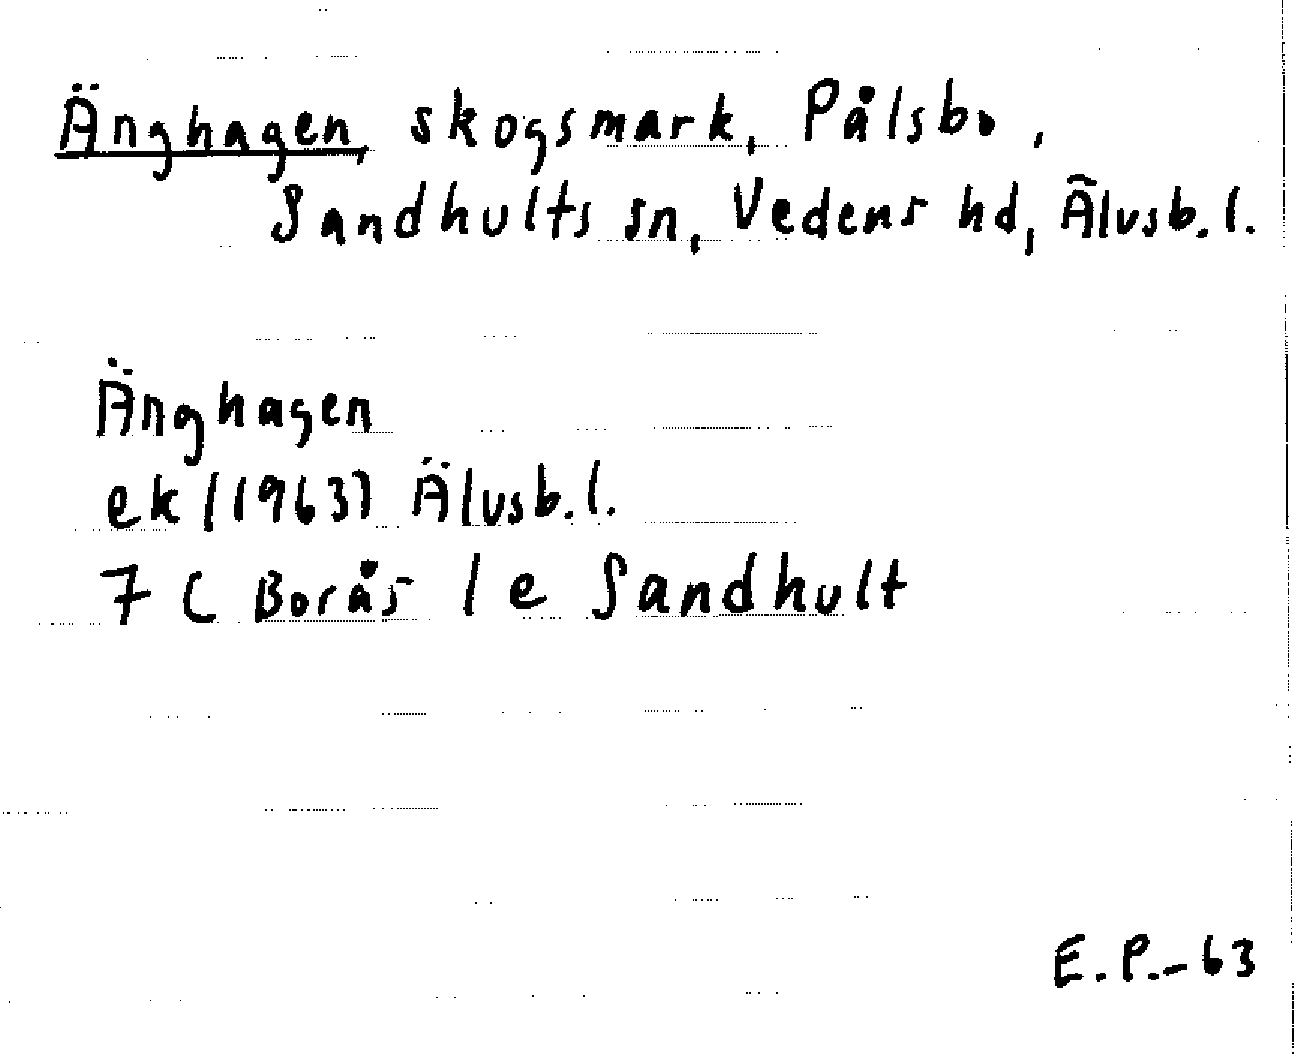 Änghagen, skogsmark, Pålsbo,
Sandhults sn, Vedens hd, Älvsb. l.
Änghagen
ek (1963) Älvsb. l.
7 C Borås 1 e Sandhult
E. P. - 63